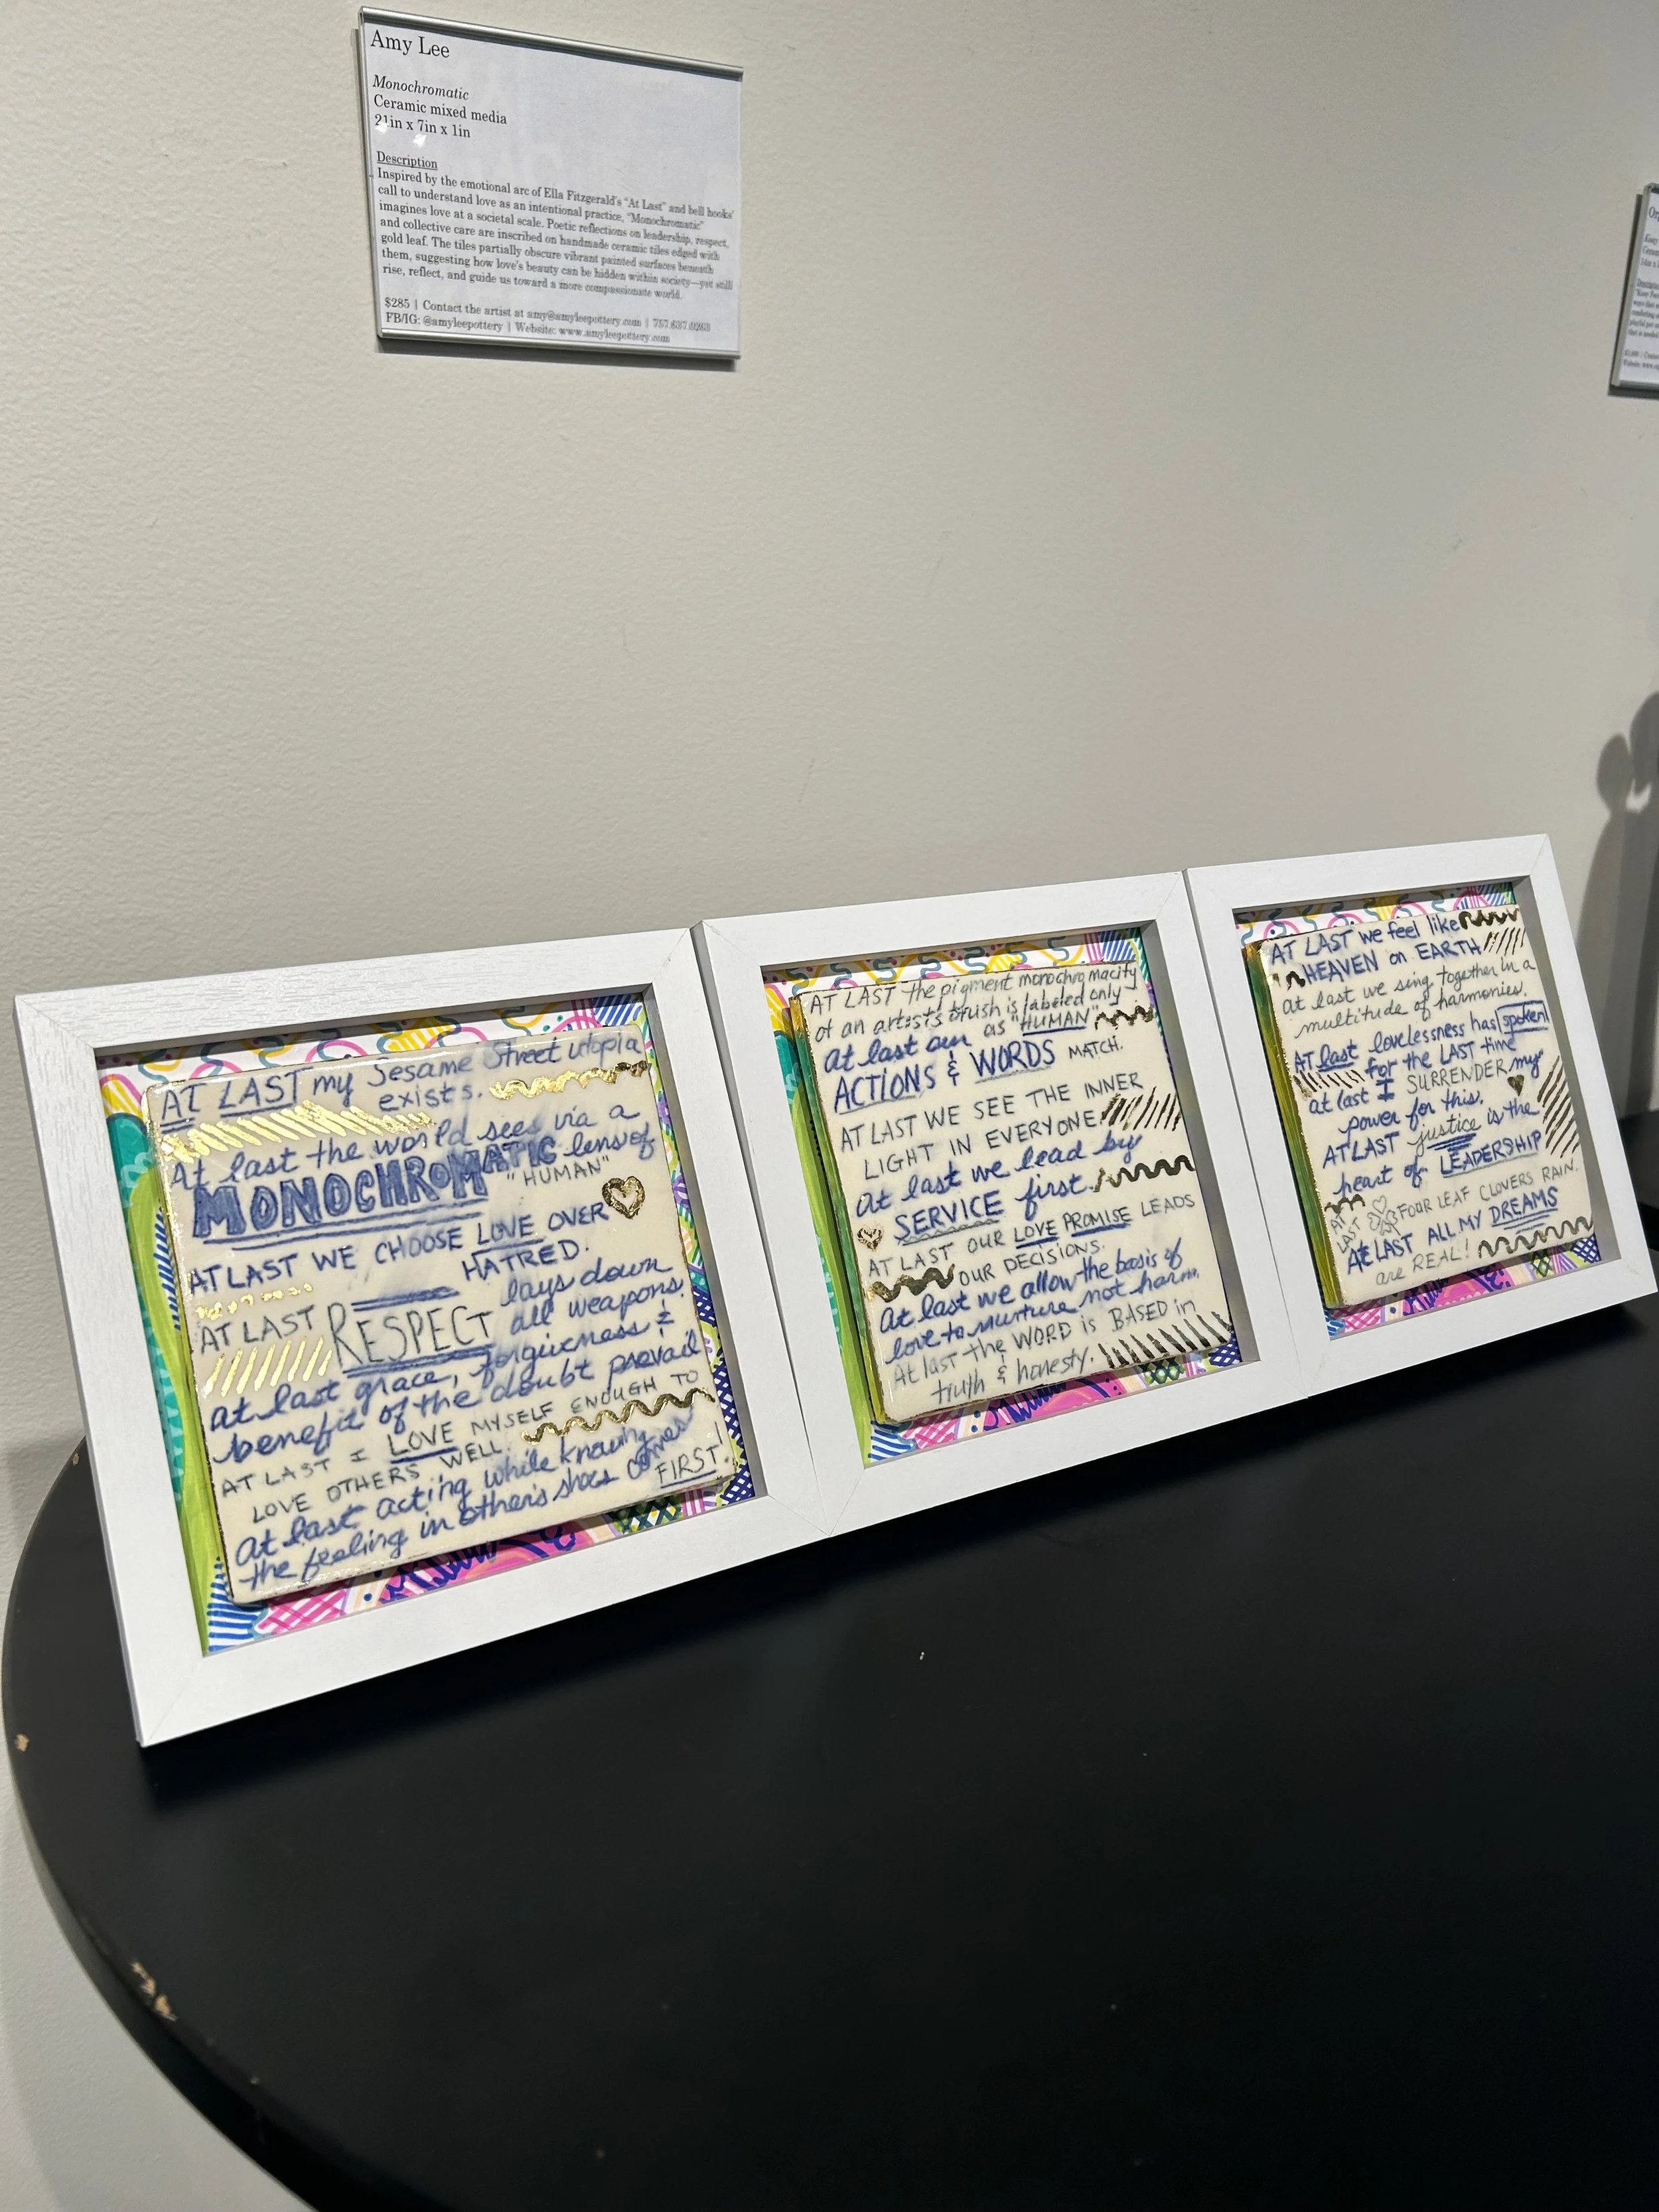 Amy Lee
Monochromatic
Ceramic mixed media
21in x 7in x 1in
Description
Inspired by the emotional arc of Ella Fitzgerald's "At Last" and bell hooks'
call to understand love as an intentional practice, "Monochromatic"
imagines love at a societal scale. Poetic reflections on leadership, respect,
and collective care are inscribed on handmade ceramic tiles edged with
gold leaf. The tiles partially obscure vibrant painted surfaces beneath
them, suggesting how love's beauty can be hidden within society—yet still
rise, reflect, and guide us toward a more compassionate world.
$285 | Contact the artist at amy@amyleepottery.com | 757.637.0263
FB/IG: @amyleepottery | Website: www.amyleepottery.com
AT LAST my Sesame Street utopia
exists.
At last the world sees via a
MONOCHROMATIC lens of
"HUMAN"
AT LAST WE CHOOSE LOVE OVER
HATRED.
AT LAST RESPECT lays down
all weapons.
at last grace, forgiveness &
benefit of the doubt prevail
AT LAST I LOVE MYSELF ENOUGH TO
LOVE OTHERS WELL.
at last acting while knowing
the feeling in other's shoes comes
FIRST!
AT LAST the pigment monochromacity
of an artist's brush is labeled only
as "HUMAN"
at last our
ACTIONS & WORDS MATCH.
AT LAST WE SEE THE INNER
LIGHT IN EVERYONE
at last we lead by
SERVICE first.
AT LAST OUR LOVE PROMISE LEADS
OUR DECISIONS.
At last we allow the basis of
love to nurture not harm.
At last the WORD is BASED in
truth & honesty.
AT LAST we feel like
HEAVEN on EARTH
at last we sing together in a
multitude of harmonies.
AT last lovelessness has spoken
for the LAST time
at last I SURRENDER my
power for this.
AT LAST justice is the
heart of LEADERSHIP
AT LAST FOUR LEAF CLOVERS RAIN.
At LAST ALL MY DREAMS
are REAL!